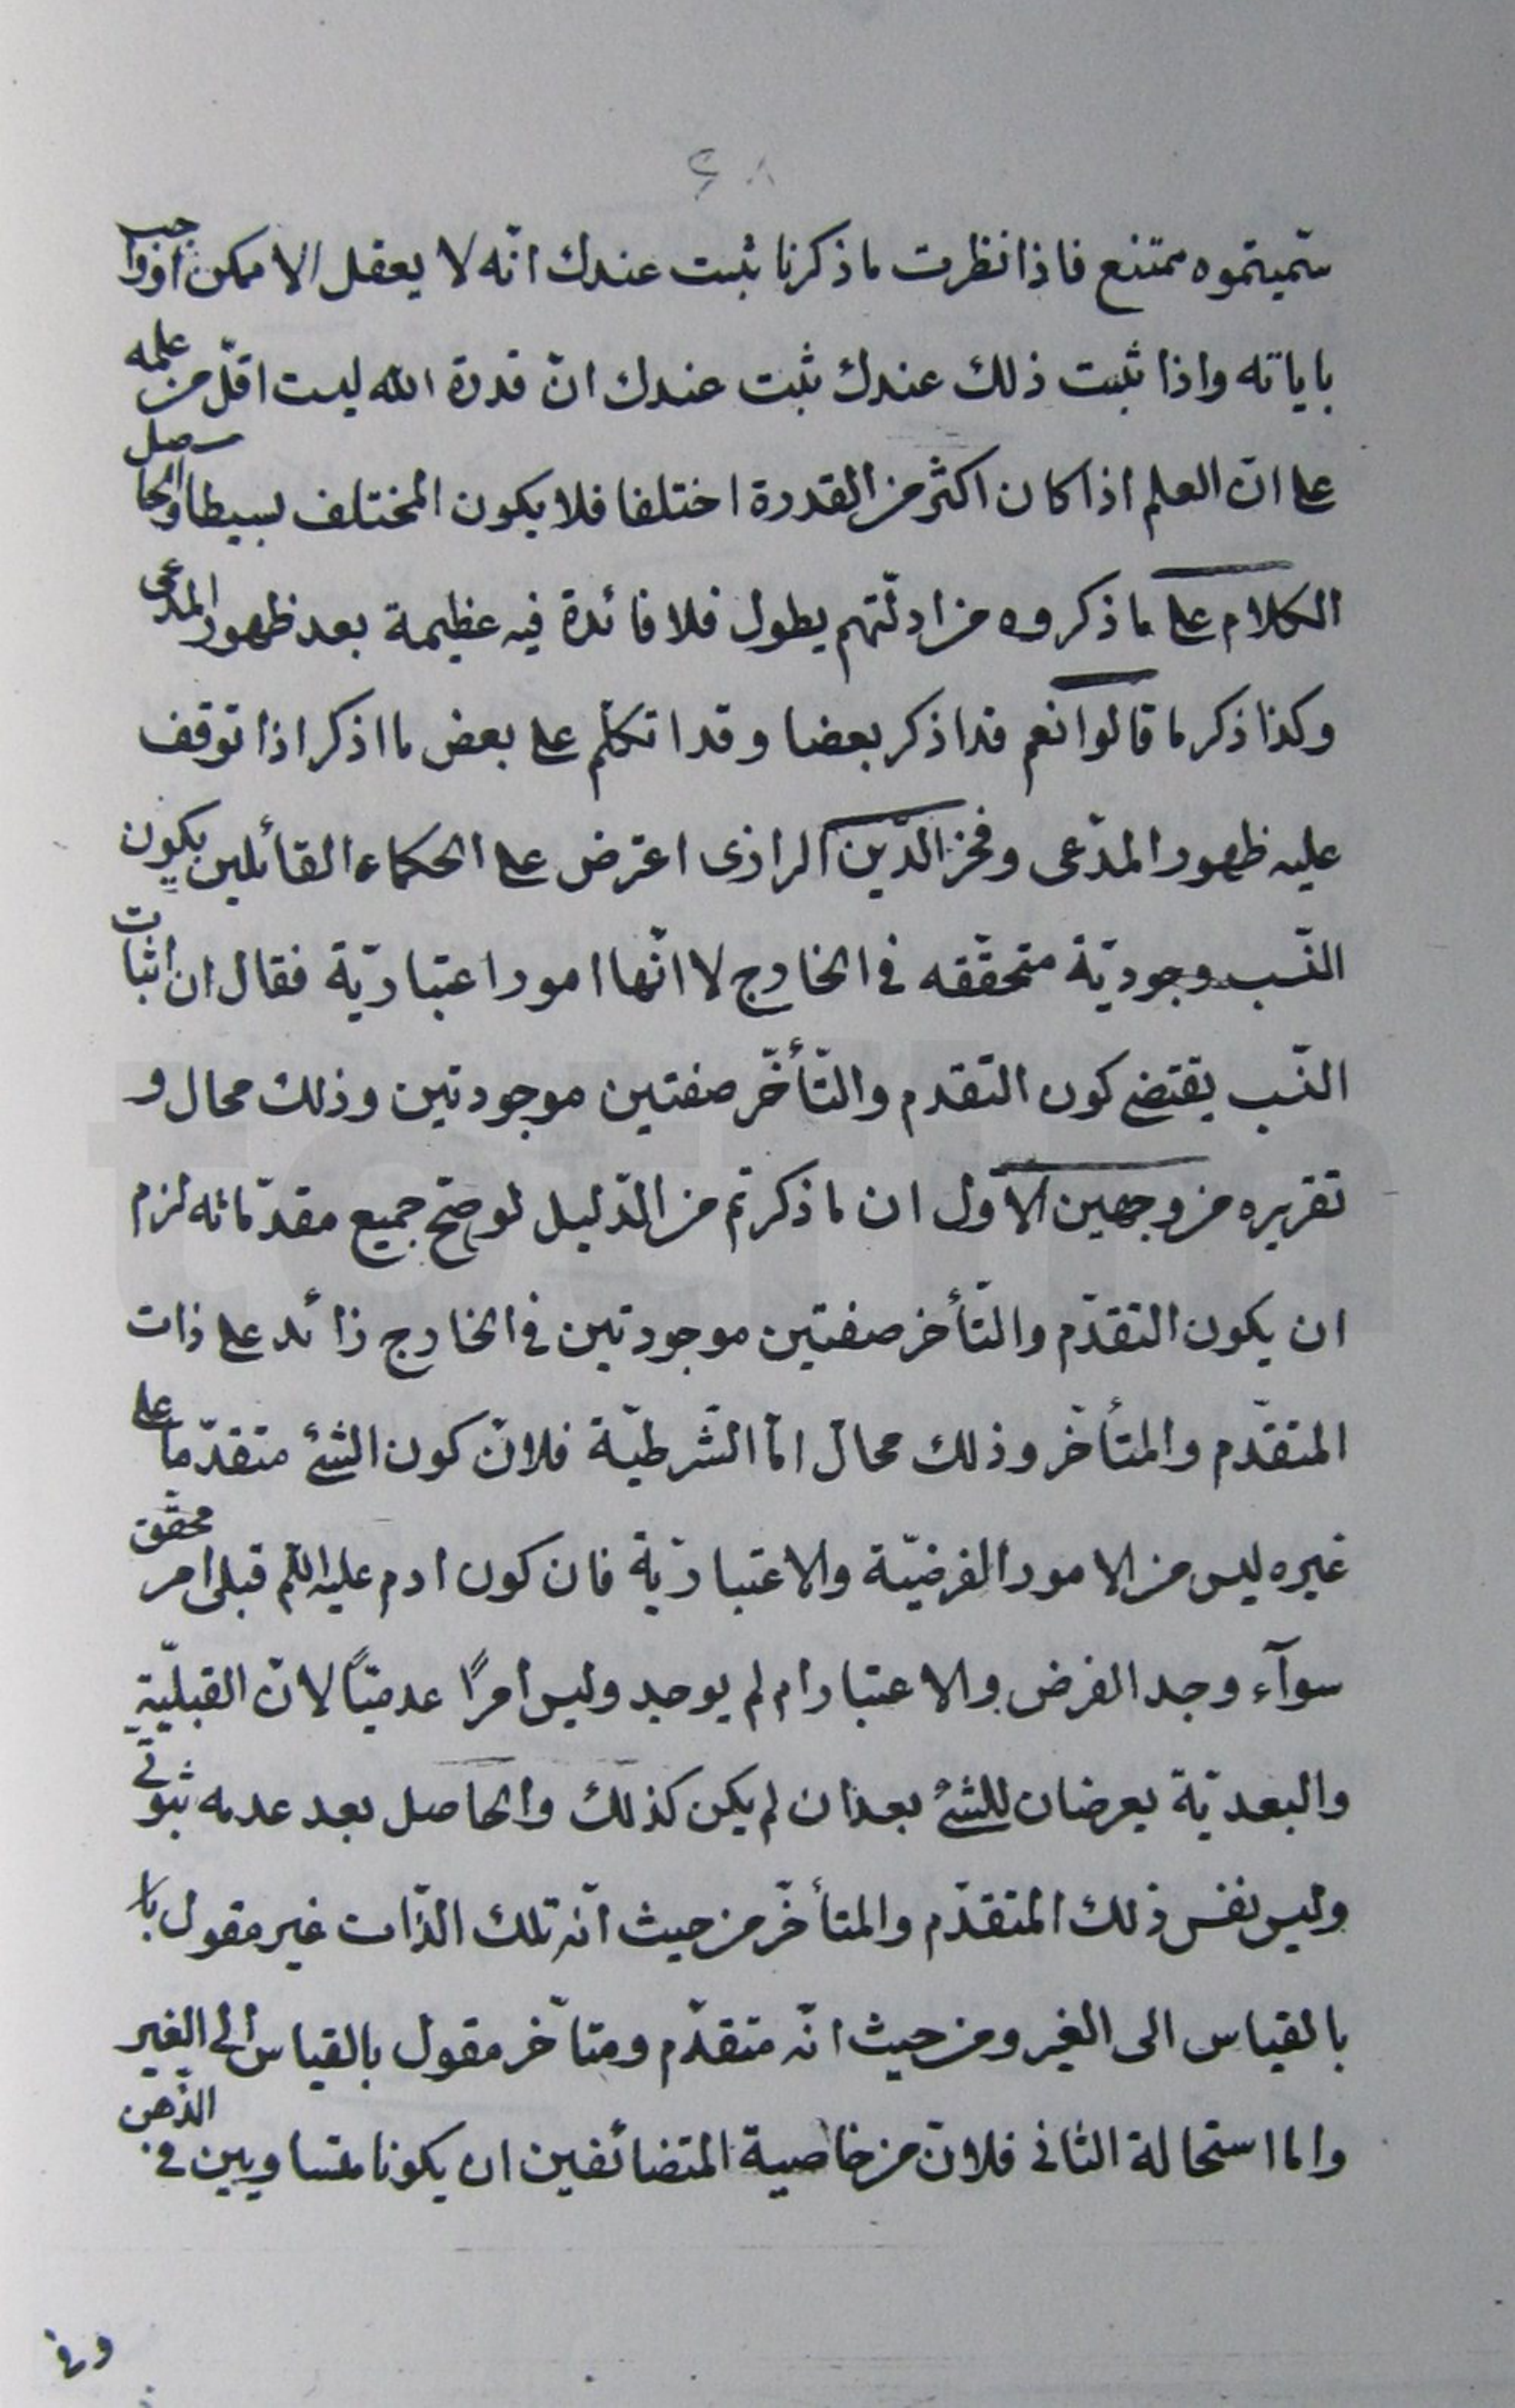 سمّيتموه ممتنع فاذا نظرت ما ذكرنا ثبت عندك انّه لا يعقل الا ممكن او واجب
باياته واذا ثبت ذلك عندك ثبت عندك انّ قدرة الله ليست اقلّ من علمه
على انّ العلم اذا كان اكثر من القدرة اختلفا فلا يكون المختلف بسيطا والحاصل
الكلام على ما ذكروه من ادلّتهم يطول فلا فائدة فيه عظيمة بعد ظهور المدّعى
وكذا ذكر ما قالوا نعم قد اذكر بعضا وقد اتكلّم على بعض ما اذكر اذا توقف
عليه ظهور المدّعى وفخر الدّين الرازى اعترض على الحكماء القائلين بكون
النّسب وجوديّة متحقّقه فى الخارج لا انّها امور اعتباريّة فقال ان اثبات
النّسب يقتضى كون التقدم والتّأخّر صفتين موجودتين وذلك محال و
تقريره من وجهين الاوّل ان ما ذكرتم من الدّليل لو صحّ جميع مقدّماته لزم
ان يكون التقدّم والتّأخر صفتين موجودتين فى الخارج زائد على ذات
المتقدّم والمتأخّر وذلك محال امّا الشّرطيّة فلانّ كون الشئ متقدّما على
غيره ليس من الامور الفرضيّة والاعتباريّة فان كون ادم عليه اللّم قبلى امر محقّق
سوآء وجد الفرض والاعتبار ام لم يوجد وليس امرًا عدميّاً لانّ القبليّة
والبعديّة يعرضان للشئ بعد ان لم يكن كذلك والحاصل بعد عدمه ثبوتى
وليس نفس ذلك المتقدّم والمتأخّر من حيث انّه تلك الذّات غير مقول با
بالقياس الى الغير ومن حيث انّه متقدّم ومتأخر مقول بالقياس الى الغير
واما استحالة الثانى فلانّ من خاصية المتضائفين ان يكونا متساويين فى الذّهن
وفى